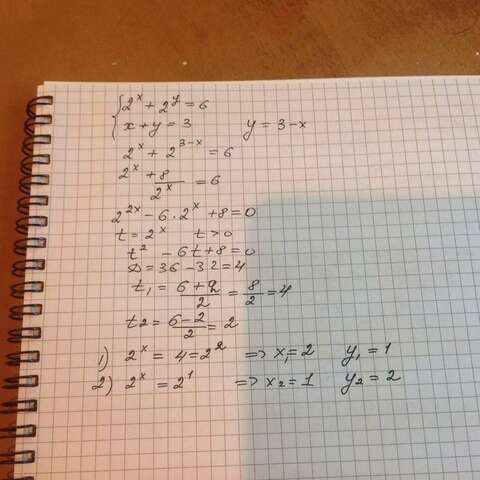 { 2^x + 2^y = 6
x + y = 3    y = 3 - x
2^x + 2^(3-x) = 6
2^x + 8/2^x = 6
2^(2x) - 6 · 2^x + 8 = 0
t = 2^x    t > 0
t^2 - 6t + 8 = 0
D = 36 - 32 = 4
t₁ = (6+2)/2 = 8/2 = 4
t₂ = (6-2)/2 = 2
1) 2^x = 4 = 2^2 => x₁ = 2    y₁ = 1
2) 2^x = 2^1 => x₂ = 1    y₂ = 2